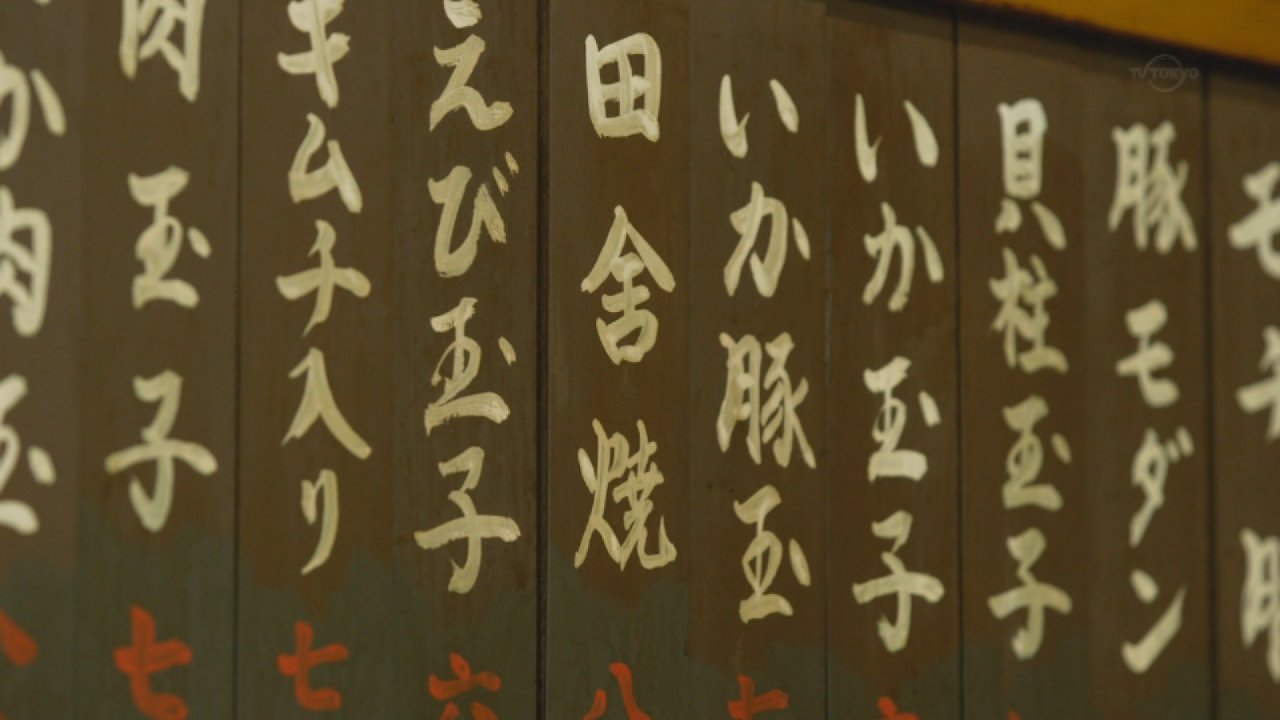 TV TOKYO
豚モダン
貝柱玉子
いか玉子
いか豚玉
七
田舎焼
八
えび玉子
六
キムチ入り
七
肉玉子
七
か肉玉